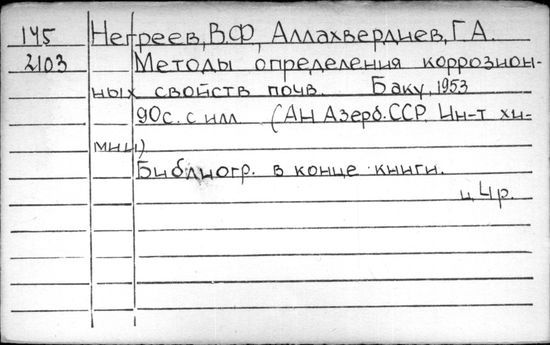 145 Негреев, В.Ф., Аллахвердиев, Г.А.
2103 Методы определения коррозион-
ных свойств почв. Баку, 1953
90с. с илл (АН Азерб.ССР. Ин-т хи-
мии)
Библиогр. в конце книги.
ц 4р.